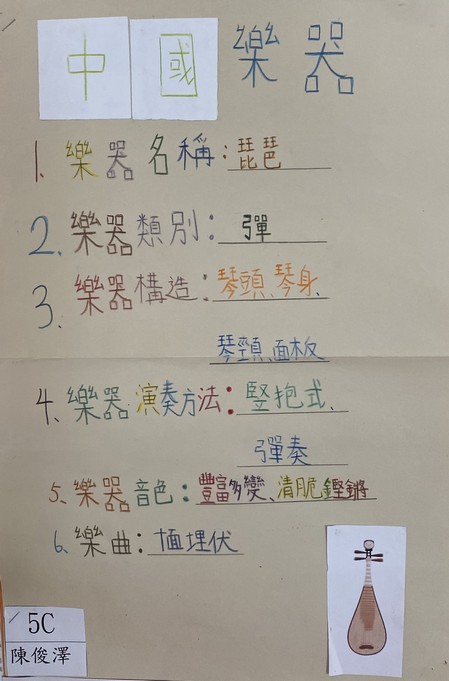 中國樂器
1. 樂器名稱：琵琶
2. 樂器類別：彈
3、樂器構造：琴頭、琴身、
琴頸、面板
4、樂器演奏方法：豎抱式、
彈奏
5、樂器音色：豐富多變、清脆、鏗鏘
6、樂曲：埋伏
5C
陳俊澤